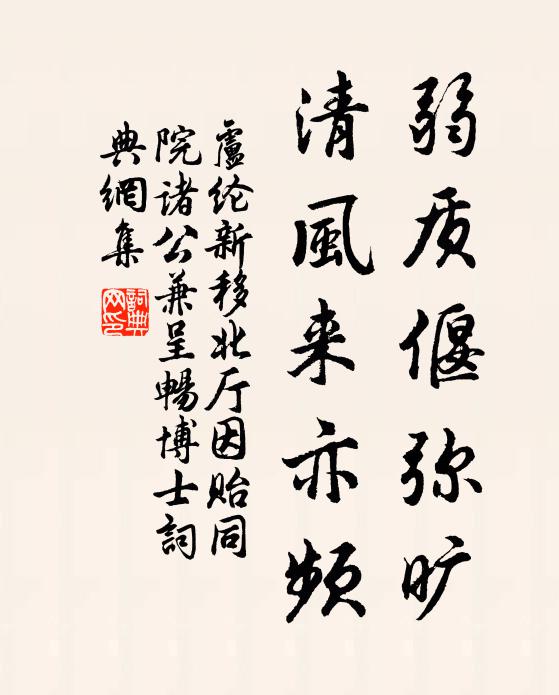 弱质偃弥旷
清風来亦频
盧纶新移北厅因贻同
院诸公兼呈暢博士詞
典網集
詞典
网印